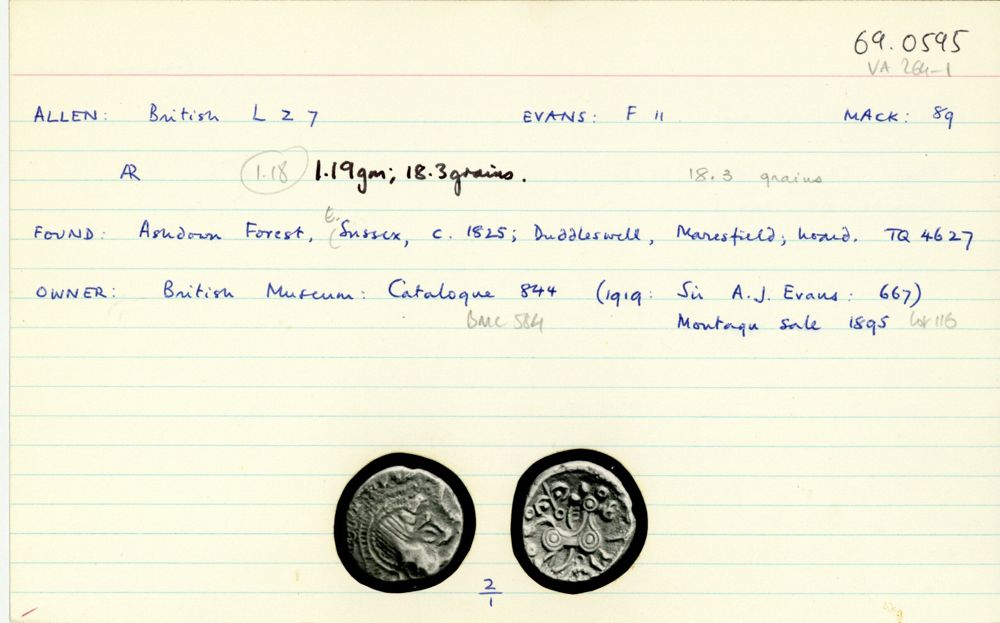 69.0595
VA 264-1
ALLEN: British L Z 7 EVANS: F 11 MACK: 89
AR 1.18 1.19gm; 18.3grains. 18.3 grains
FOUND: Ashdown Forest, E. Sussex, c. 1825; Duddleswell, Maresfield; hoard. TQ 4627
OWNER: British Museum: Catalogue 844 (1919: Sir A.J. Evans: 667)
BMC 584 Montagu sale 1895 lot 116
2
1